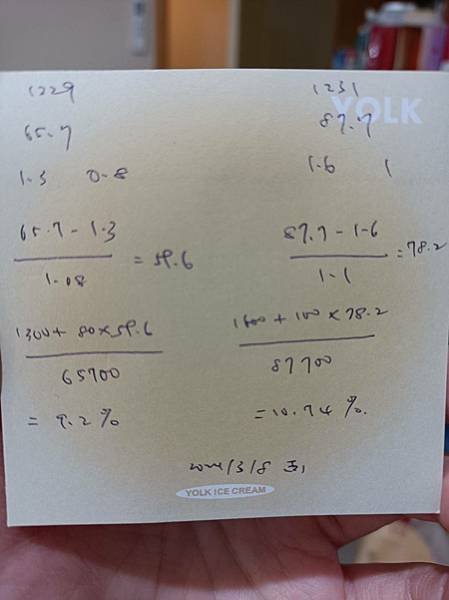 1229
65.7
1.3 0.8
65.7 - 1.3
1.08
= 59.6
1300 + 80 × 59.6
65700
= 9.2%
1231
YOLK
87.7
1.6 1
87.7 - 1.6
1.1
= 78.2
1600 + 100 × 78.2
87700
= 10.74%.
/3/8
YOLK ICE CREAM